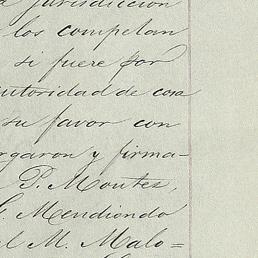 jurisdicción
los competan
si fuere por
autoridad de cosa
su favor con
rgaron y firma-
P. Montes,
G. Mendiondo
el M. Malo=